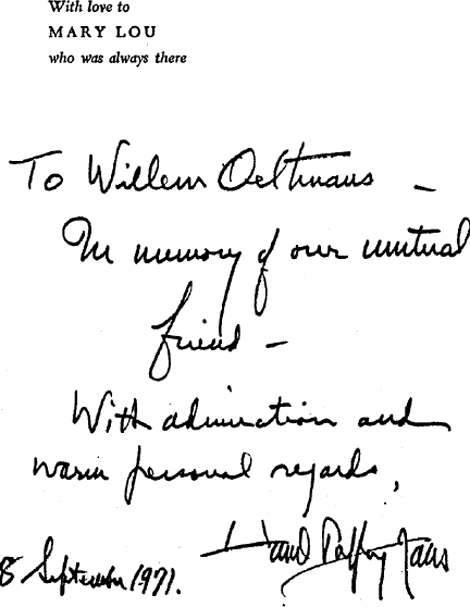 With love to
MARY LOU
who was always there
To Willem Oeltmans –
In memory of our mutual
friend –
With admiration and
warm personal regards,
8 September 1971.